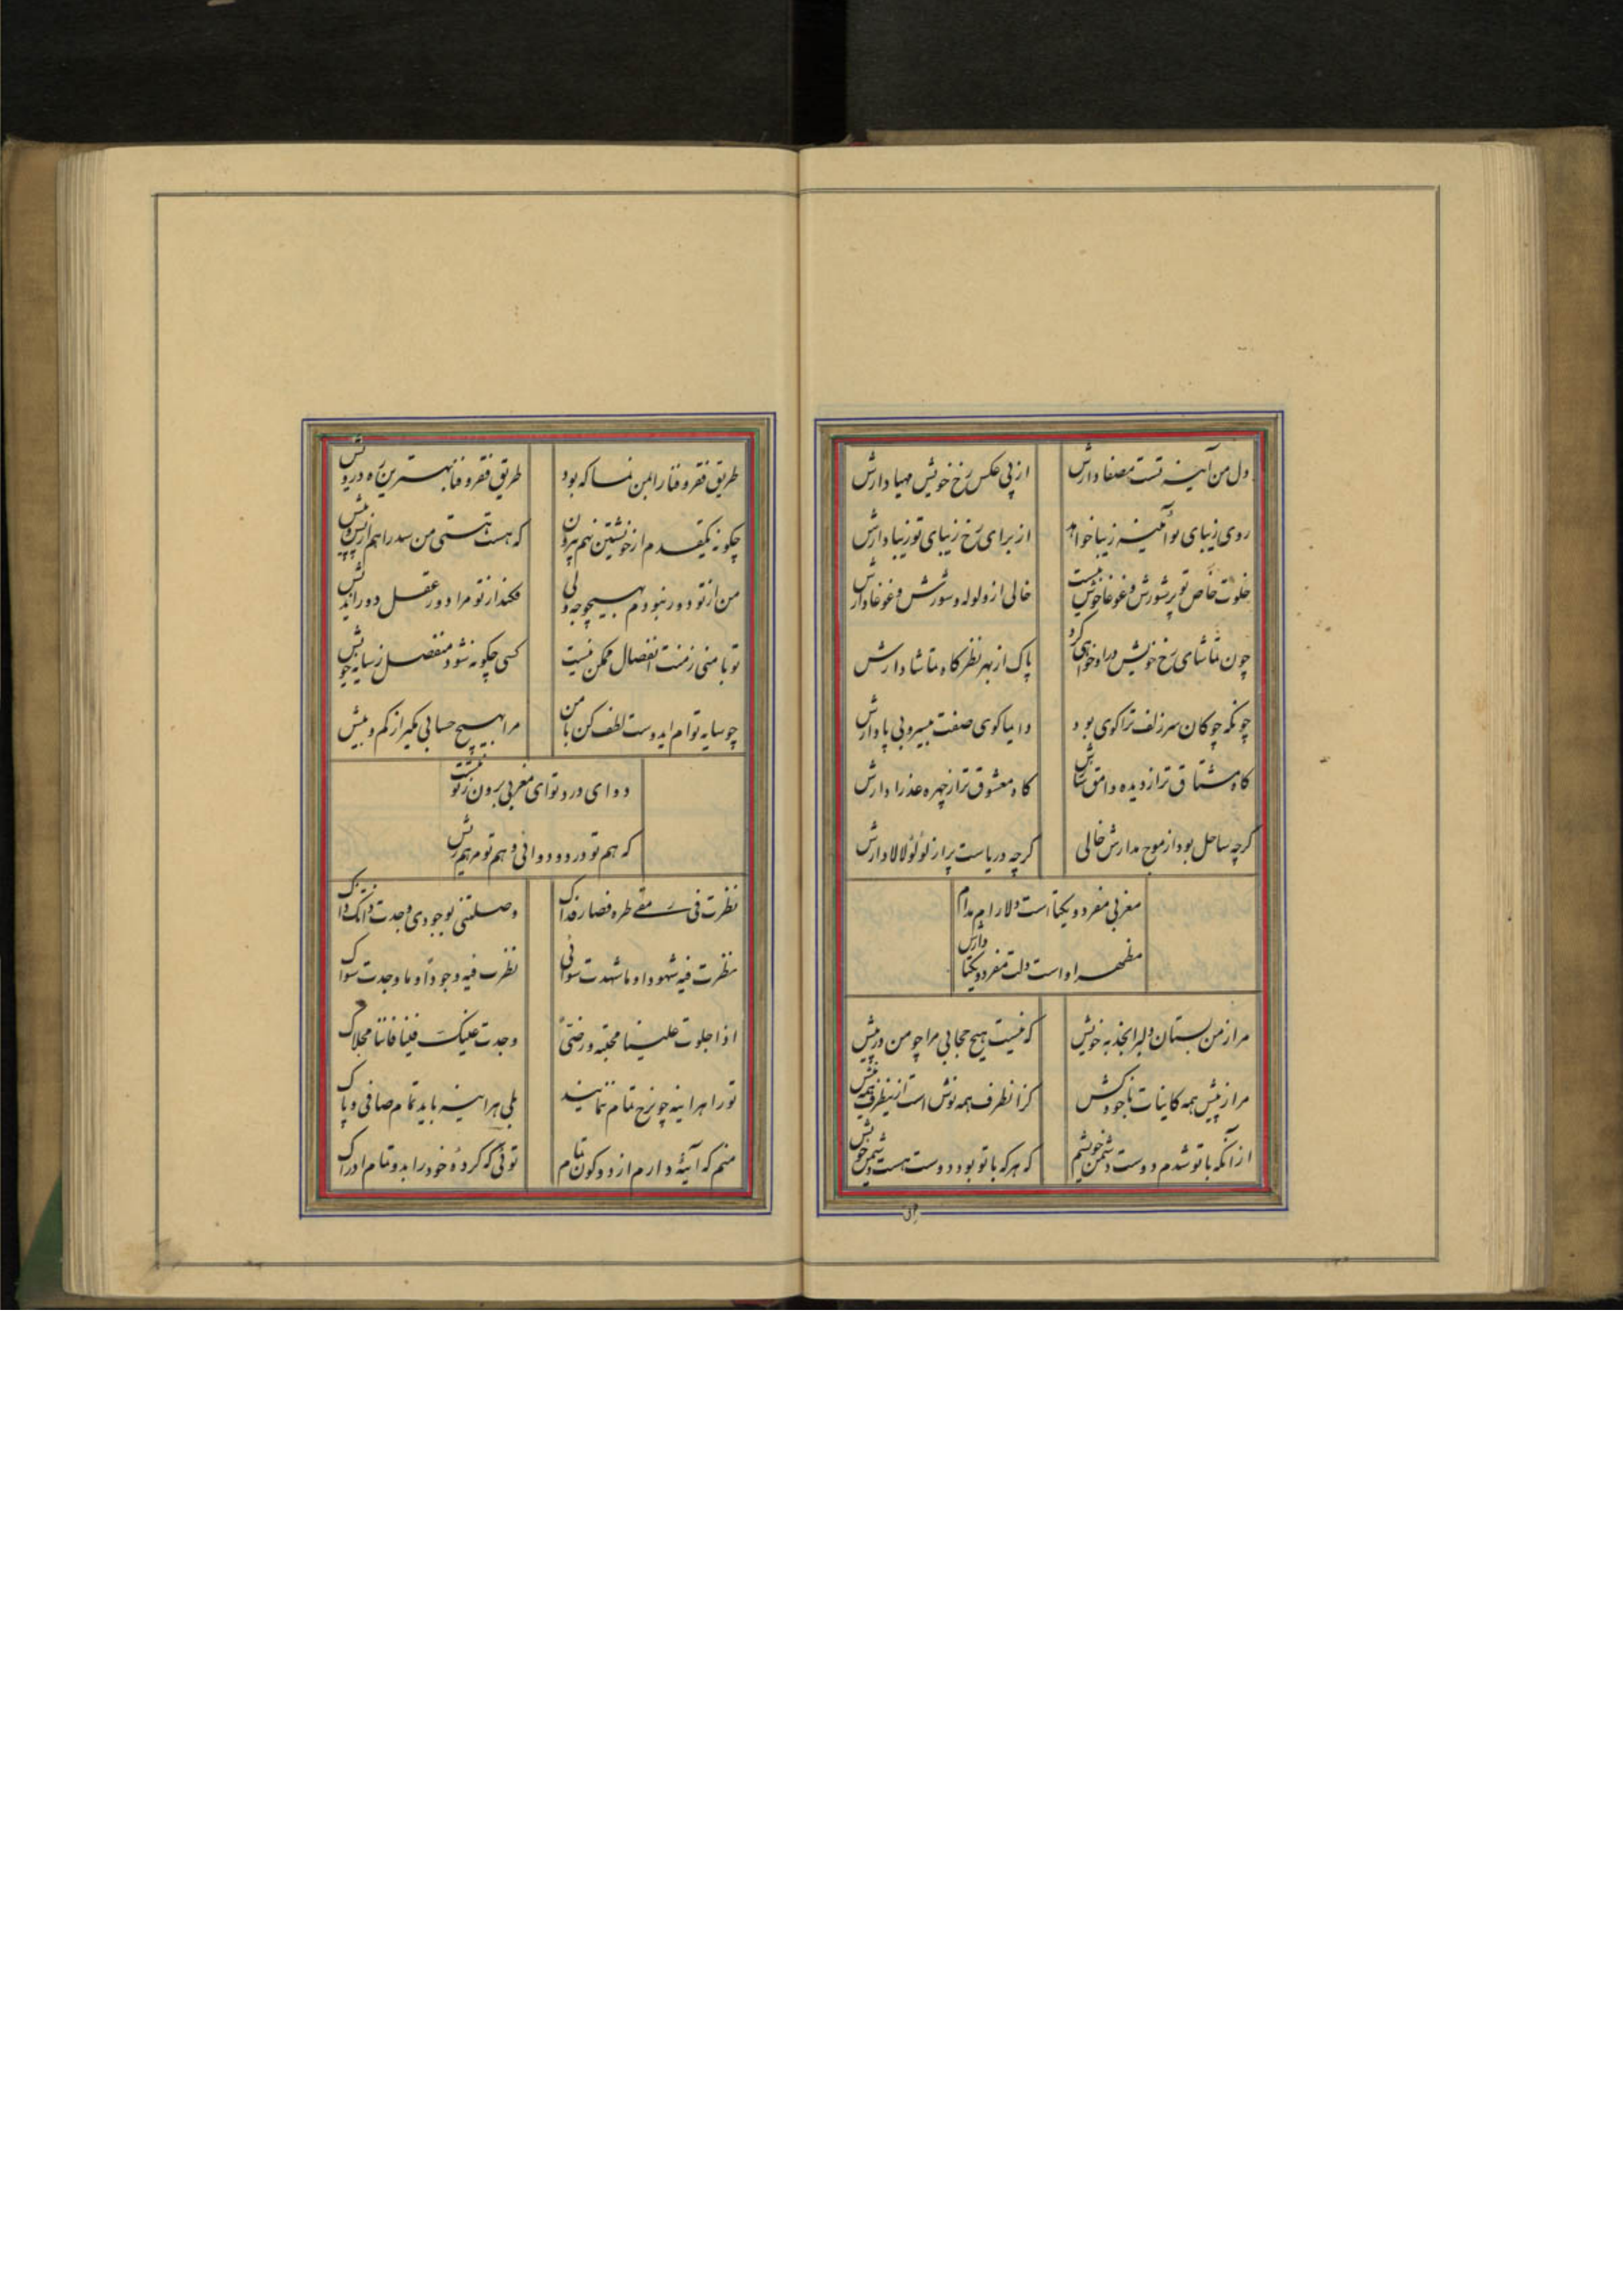 دل من آینه تست مصفا دارش
از پی عکس رخ خویش مهیا دارش
روی زیبای تو آئینه زیبا خواهد
از برای رخ زیبای تو زیبا دارش
خلوت خاص تو پر شورش و غوغا خوش نیست
خالی از ولوله و شورش و غوغا دارش
چون تماشای رخ خویش در او خواهی کرد
پاک از بهر نظرگاه تماشا دارش
چونکه چوکان سر زلف ترا کوی بود
دایما کوی صفت بیسر و بی پا دارش
کاه مشتاق تر از دیده وامق سازش
کاه معشوق تر از چهره عذرا دارش
کرچه ساحل بود از موج مدارش خالی
کرچه دریاست پر از لؤلؤ لالا دارش
مغربی مفرد و یکتا است دلارام مدام
مظهر او است دلت مفرد و یکتا دارش
مرا ز من بستان دلبرا بجذبه خویش
که نیست هیچ حجابی مرا چو من در پیش
مرا ز پیش همه کاینات با خود کش
کز انطرف همه نوش است ازینطرف همه نیش
از آنکه با تو شدم دوست دشمن خویشم
که هر که با تو بود دوست هست دشمن خویش
طریق فقر و فنا را بمن نما که بود
طریق فقر و فنا بهترین ره درویش
چکونه یکقدم از خویشتن نهم بیرون
که هست هستی من سد راهم از پس و پیش
من از تو دور نبودم بهیچوجه ولی
فکند از تو مرا دور عقل دوراندیش
تو با منی ز منت انفصال ممکن نیست
کسی چکونه شود منفصل ز سایه خویش
چو سایه توام ایدوست لطف کن با من
مرا بهیچ حسابی مکیر از کم و بیش
دوای درد تو ای مغربی برون ز تو نیست
که هم تو درد و دوائی و هم تو مرهم ریش
نظرت فی رمقی طره فصار فداک
وصلتنی بوجودی وجدت ذاتک ذاک
نظرت فیه شهودا و ما شهدت سوائی
نظرت فیه وجودا و ما وجدت سواک
اذا جلوت علینا محبته و رضیً
وجدت علیک فینا فاننا مجلاک
تو را هر اینه چو رخ تمام ننماید
بلی هر اینه باید تمام صافی و پاک
منم که آینهٔ دارم از دو کون تمام
توئی که کردهٔ خود را بدو تمام ادراک